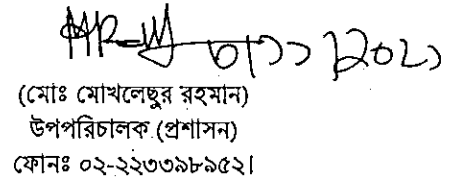 (মোঃ মোখলেছুর রহমান)
উপপরিচালক (প্রশাসন)
ফোনঃ ০২-২২৩৩৯৮৯৫২।